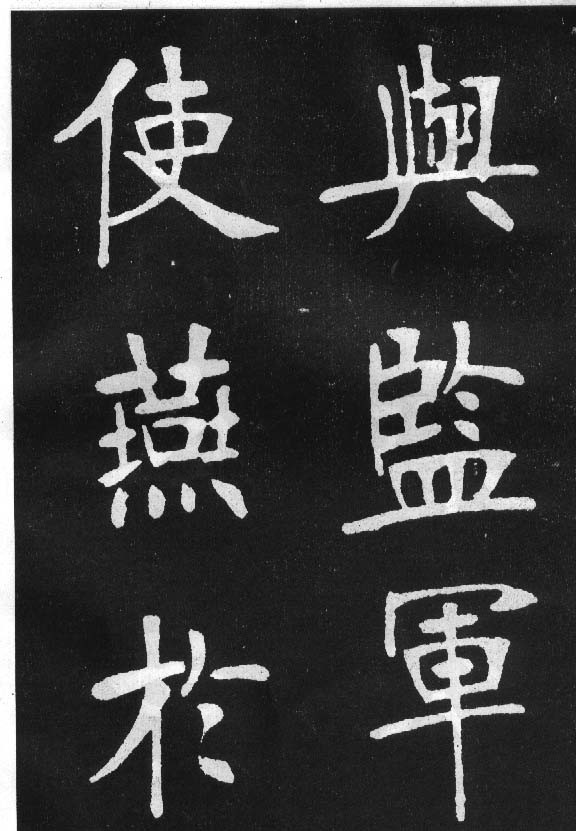 與監軍
使燕於